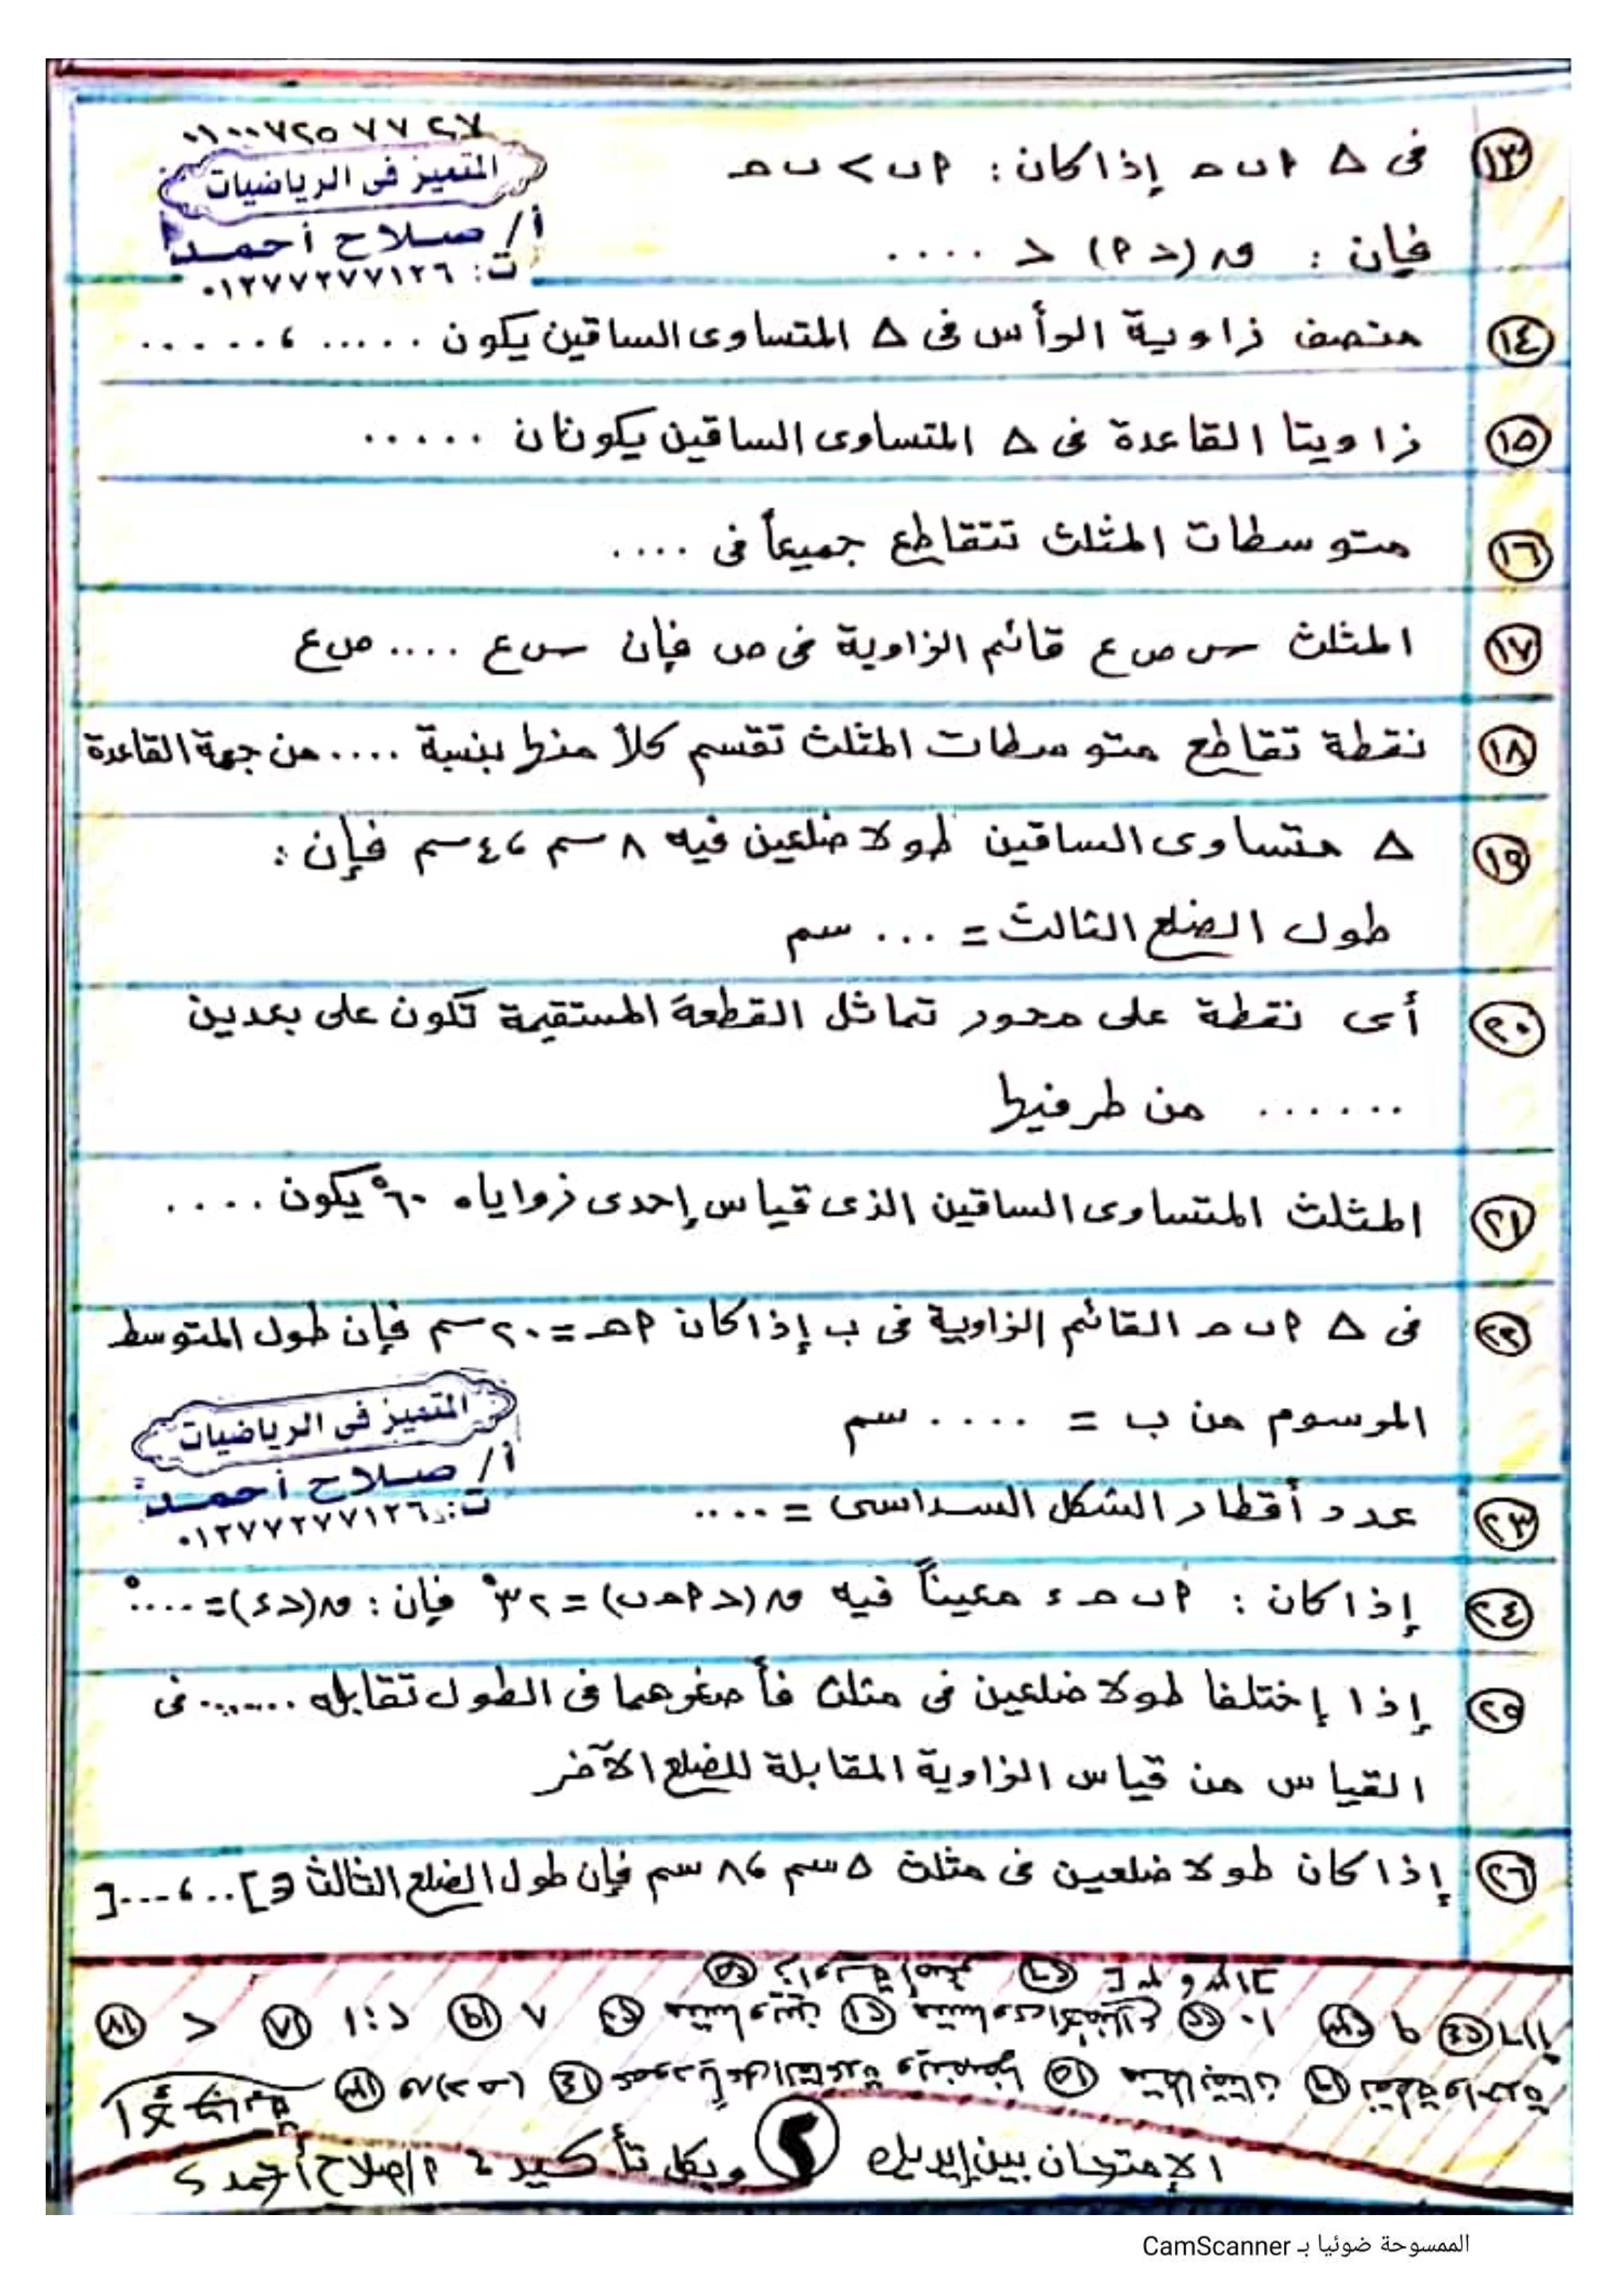 ٠١٠٠٧٢٥٧٧٢٧
المتميز فى الرياضيات
أ/ صلاح أحمد
ت: ٠١٢٧٧٢٧٧١٢٦
١٣ فى △ ٢ ب حـ إذا كان : ٢ ب > ب حـ
فإن : ور (د ٢) < ....
١٤ منصف زاوية الرأس فى △ المتساوى الساقين يكون ..... ، ......
١٥ زاويتا القاعدة فى △ المتساوى الساقين يكونان .....
١٦ متوسطات المثلث تتقاطع جميعاً فى ....
١٧ المثلث س ص ع قائم الزاوية فى ص فإن س ع .... ص ع
١٨ نقطة تقاطع متوسطات المثلث تقسم كلاً منها بنسبة .... من جهة القاعدة
١٩ △ متساوى الساقين طولا ضلعين فيه ٨ سم ، ٤ سم فإن :
طول الضلع الثالث = ... سم
٢٠ أى نقطة على محور تماثل القطعة المستقيمة تكون على بعدين
...... من طرفيها
٢١ المثلث المتساوى الساقين الذى قياس إحدى زواياه ٦٠° يكون ....
٢٢ فى △ ٢ ب حـ القائم الزاوية فى ب إذا كان ٢ حـ = ٢٠ سم فإن طول المتوسط
الموسوم من ب = .... سم
المتميز فى الرياضيات
أ/ صلاح أحمد
ت: ٠١٢٧٧٢٧٧١٢٦
٢٣ عدد أقطار الشكل السداسى = ....
٢٤ إذا كان : ٢ ب حـ ء معيناً فيه ور (د ٢ حـ ب) = ٣٢° فإن : ور (د ء) = ....°
٢٥ إذا إختلفا طولا ضلعين فى مثلث فأصغرهما فى الطول تقابله ....... فى
القياس من قياس الزاوية المقابلة للضلع الآخر
٢٦ إذا كان طولا ضلعين فى مثلث ٥ سم ، ٨ سم فإن طول الضلع الثالث ∈ ].. ، ....[
١٣ ور (د حـ) ١٤ عمودياً على القاعدة وينصفها ١٥ متطابقتان ١٦ نقطة واحدة
١٧ > ١٨ ١ : ٢ ١٩ ٨ ٢٠ متساويين ٢١ متساوى الأضلاع ٢٢ ١٠ ٢٣ ٩ ٢٤ ١١٦
٢٥ زاوية أصغر ٢٦ ]٣ ، ١٣[
الإمتحان بين إيديك ٢ وبكل تأكيد ء ٢/ صلاح أحمد
الممسوحة ضوئيا بـ CamScanner